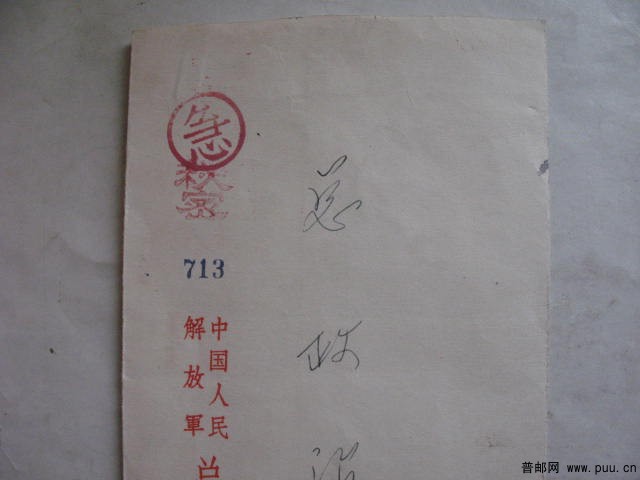 急
秘密
713
中国人民
解放軍
总政
普邮网 www.puu.cn